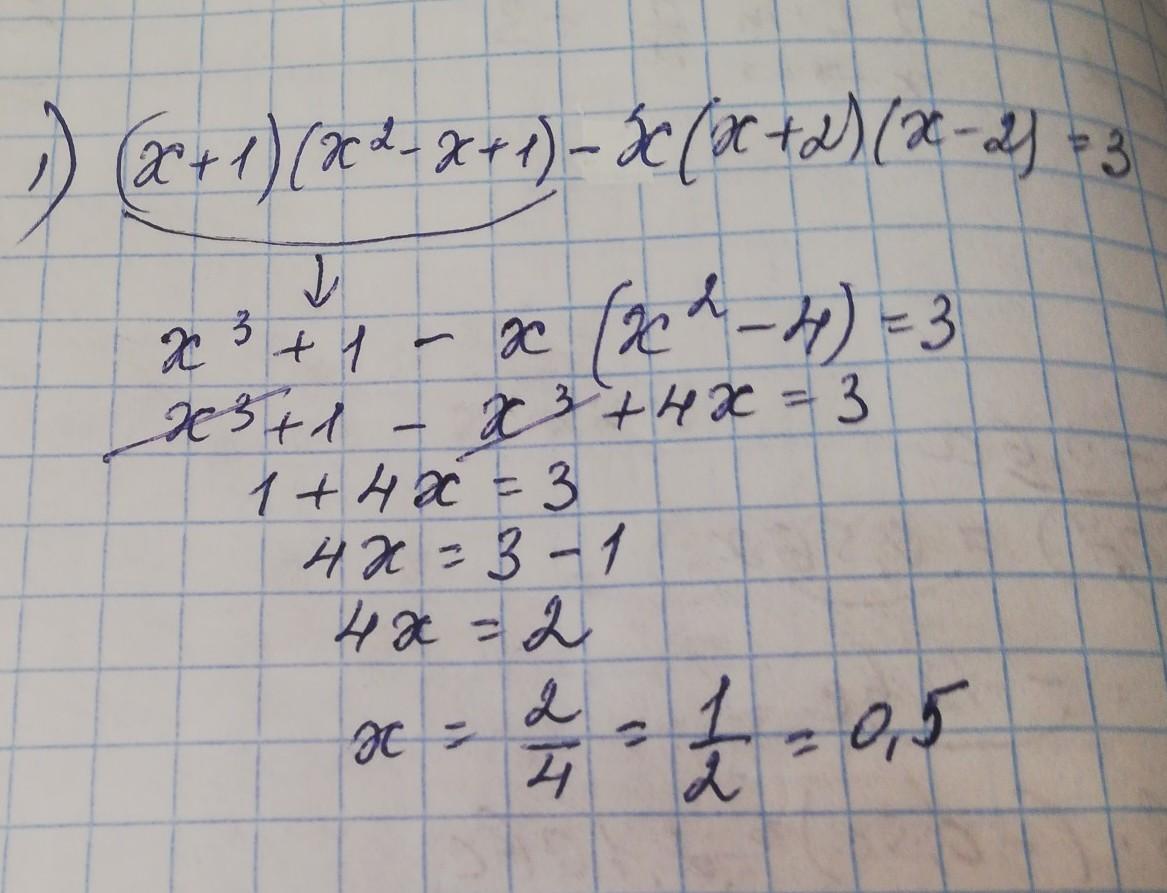 1) (x+1)(x²-x+1)-x(x+2)(x-2)=3
x³+1-x(x²-4)=3
x³+1-x³+4x=3
1+4x=3
4x=3-1
4x=2
x=2/4=1/2=0,5